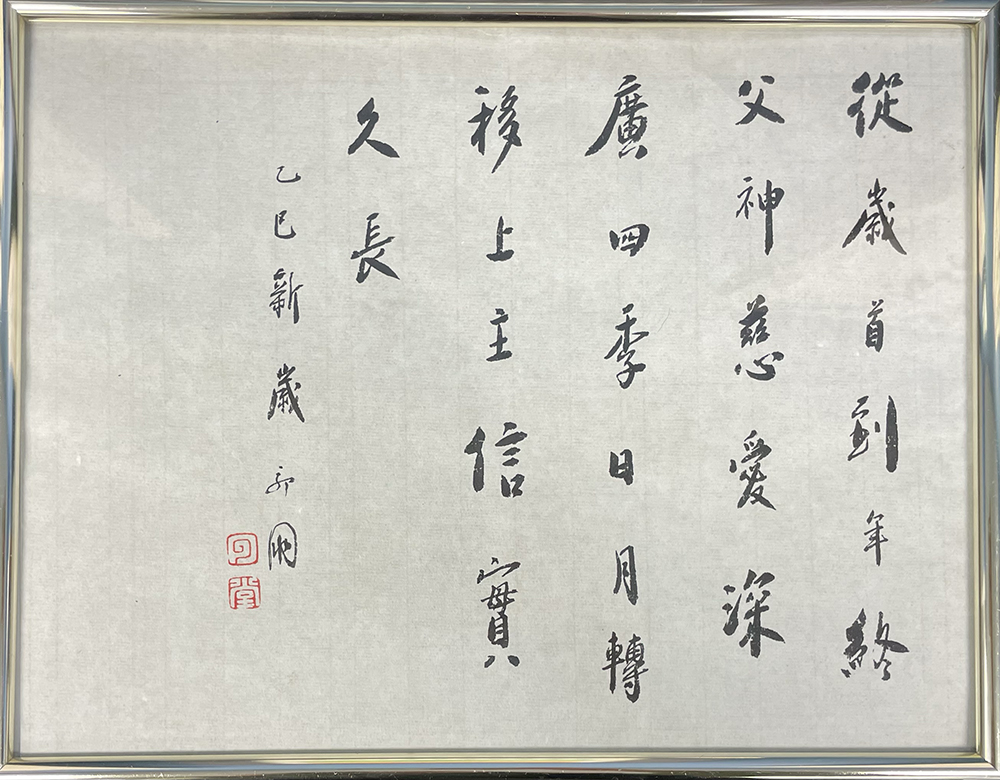 從歲首到年終
父神慈愛深
廣四季日月轉
移上主信實
久長
乙巳新歲